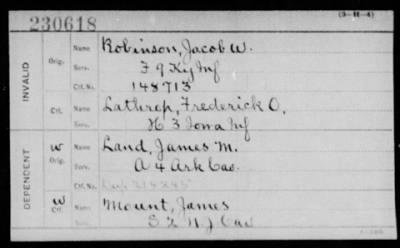 230618
(3-H-4)
INVALID
Orig.
Name Robinson, Jacob W.
Serv. F 9 Ky Inf
Ctf. No. 148713
Ctf.
Name Lathrop, Frederick O.
Serv. H 3 Iowa Inf
DEPENDENT
W
Orig.
Name Land, James M.
Serv. A 4 Ark Cav.
Ctf. No.
W
Ctf.
Name Mount, James
Serv. N J Cav